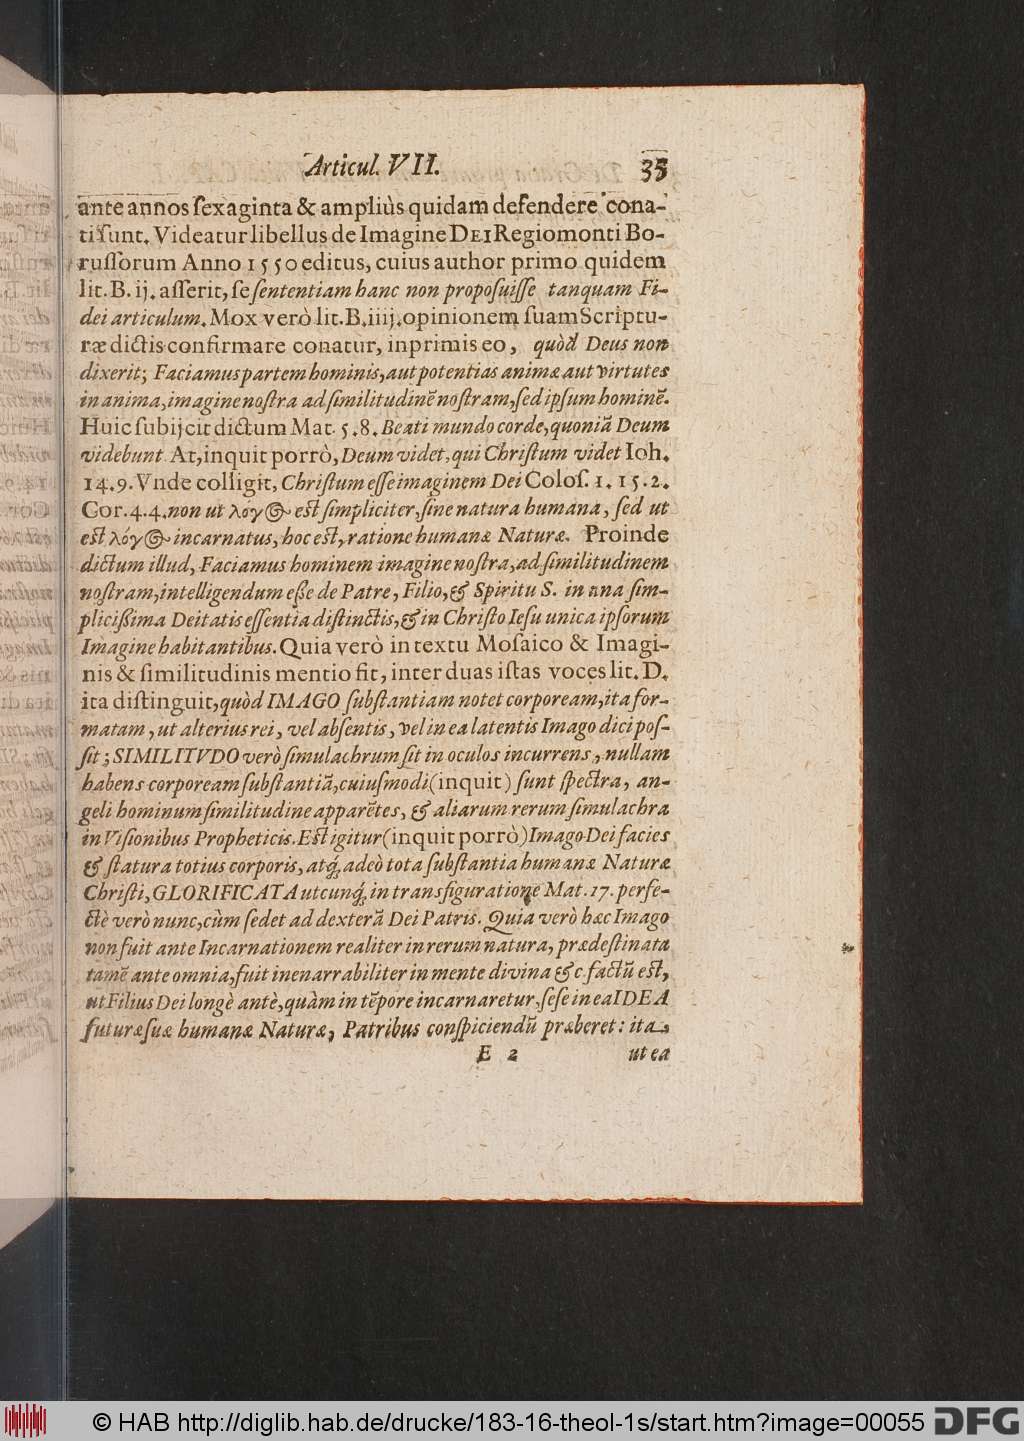 Articul. VII. 35
ante annos ſexaginta & ampliùs quidam defendere cona-
ti ſunt. Videatur libellus de Imagine DEI Regiomonti Bo-
ruſſorum Anno 1550 editus, cuius author primo quidem
lit. B. ij. aſſerit, ſe ſententiam hanc non propoſuiſſe tanquam Fi-
dei articulum. Mox verò lit. B. iiij. opinionem ſuam Scriptu-
ræ dictis confirmare conatur, inprimis eo, quòd Deus non
dixerit; Faciamus partem hominis, aut potentias animæ aut virtutes
in anima, imagine noſtra ad ſimilitudinē noſtram, ſed ipſum hominē.
Huic ſubijcit dictum Mat. 5. 8. Beati mundo corde, quoniā Deum
videbunt. At, inquit porrò, Deum videt, qui Chriſtum videt Ioh.
14. 9. Vnde colligit, Chriſtum eſſe imaginem Dei Coloſ. 1. 15. 2.
Cor. 4. 4. non ut λόγος eſt ſimpliciter, ſine natura humana, ſed ut
eſt λόγος incarnatus, hoc eſt, ratione humanæ Naturæ. Proinde
dictum illud, Faciamus hominem imagine noſtra, ad ſimilitudinem
noſtram, intelligendum eſſe de Patre, Filio, & Spiritu S. in una ſim-
pliciſſima Deitatis eſſentia diſtinctis, & in Chriſto Ieſu unica ipſorum
Imagine habitantibus. Quia verò in textu Moſaico & Imagi-
nis & ſimilitudinis mentio fit, inter duas iſtas voces lit. D.
ita diſtinguit, quòd IMAGO ſubſtantiam notet corpoream, ita for-
matam, ut alterius rei, vel abſentis, vel in ea latentis Imago dici poſ-
ſit; SIMILITVDO verò ſimulachrum ſit in oculos incurrens, nullam
habens corpoream ſubſtantiā, cuiuſmodi (inquit) ſunt ſpectra, an-
geli hominum ſimilitudine apparētes, & aliarum rerum ſimulachra
in Viſionibus Propheticis. Eſt igitur (inquit porrò) Imago Dei facies
& ſtatura totius corporis, atq́; adeò tota ſubſtantia humanæ Naturæ
Chriſti, GLORIFICATA utcunq́; in transfiguratione Mat. 17. perfe-
ctè verò nunc, cùm ſedet ad dexterā Dei Patris. Quia verò hæc Imago
non fuit ante Incarnationem realiter in rerum natura, prædeſtinata
tamē ante omnia, fuit inenarrabiliter in mente divina & c. factū eſt,
ut Filius Dei longè antè, quàm in tēpore incarnaretur, ſeſe in ea IDEA
futuræ ſuæ humanæ Naturæ, Patribus conſpiciendū præberet: ita,
E 2 ut ea
© HAB http://diglib.hab.de/drucke/183-16-theol-1s/start.htm?image=00055 DFG